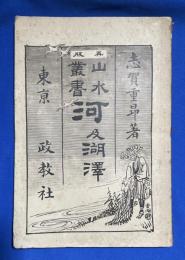 志賀重昂著
再版
山水叢書
河及湖澤
東京 政教社